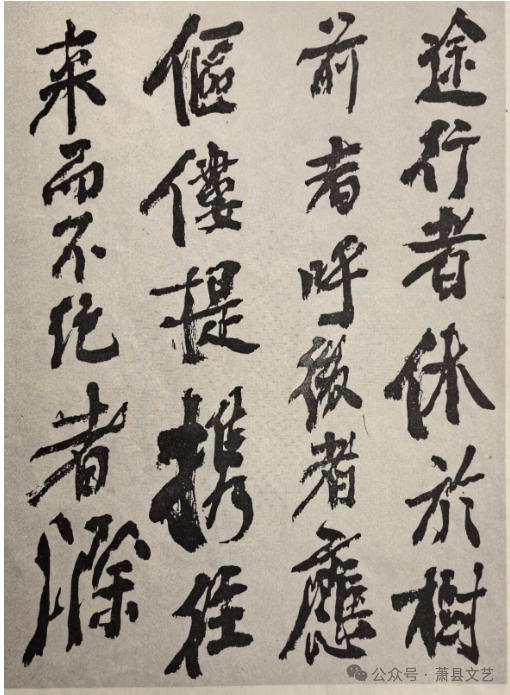 途行者休於樹
前者呼後者應
傴僂提携往
来而不絶者滁
公众号·萧县文艺